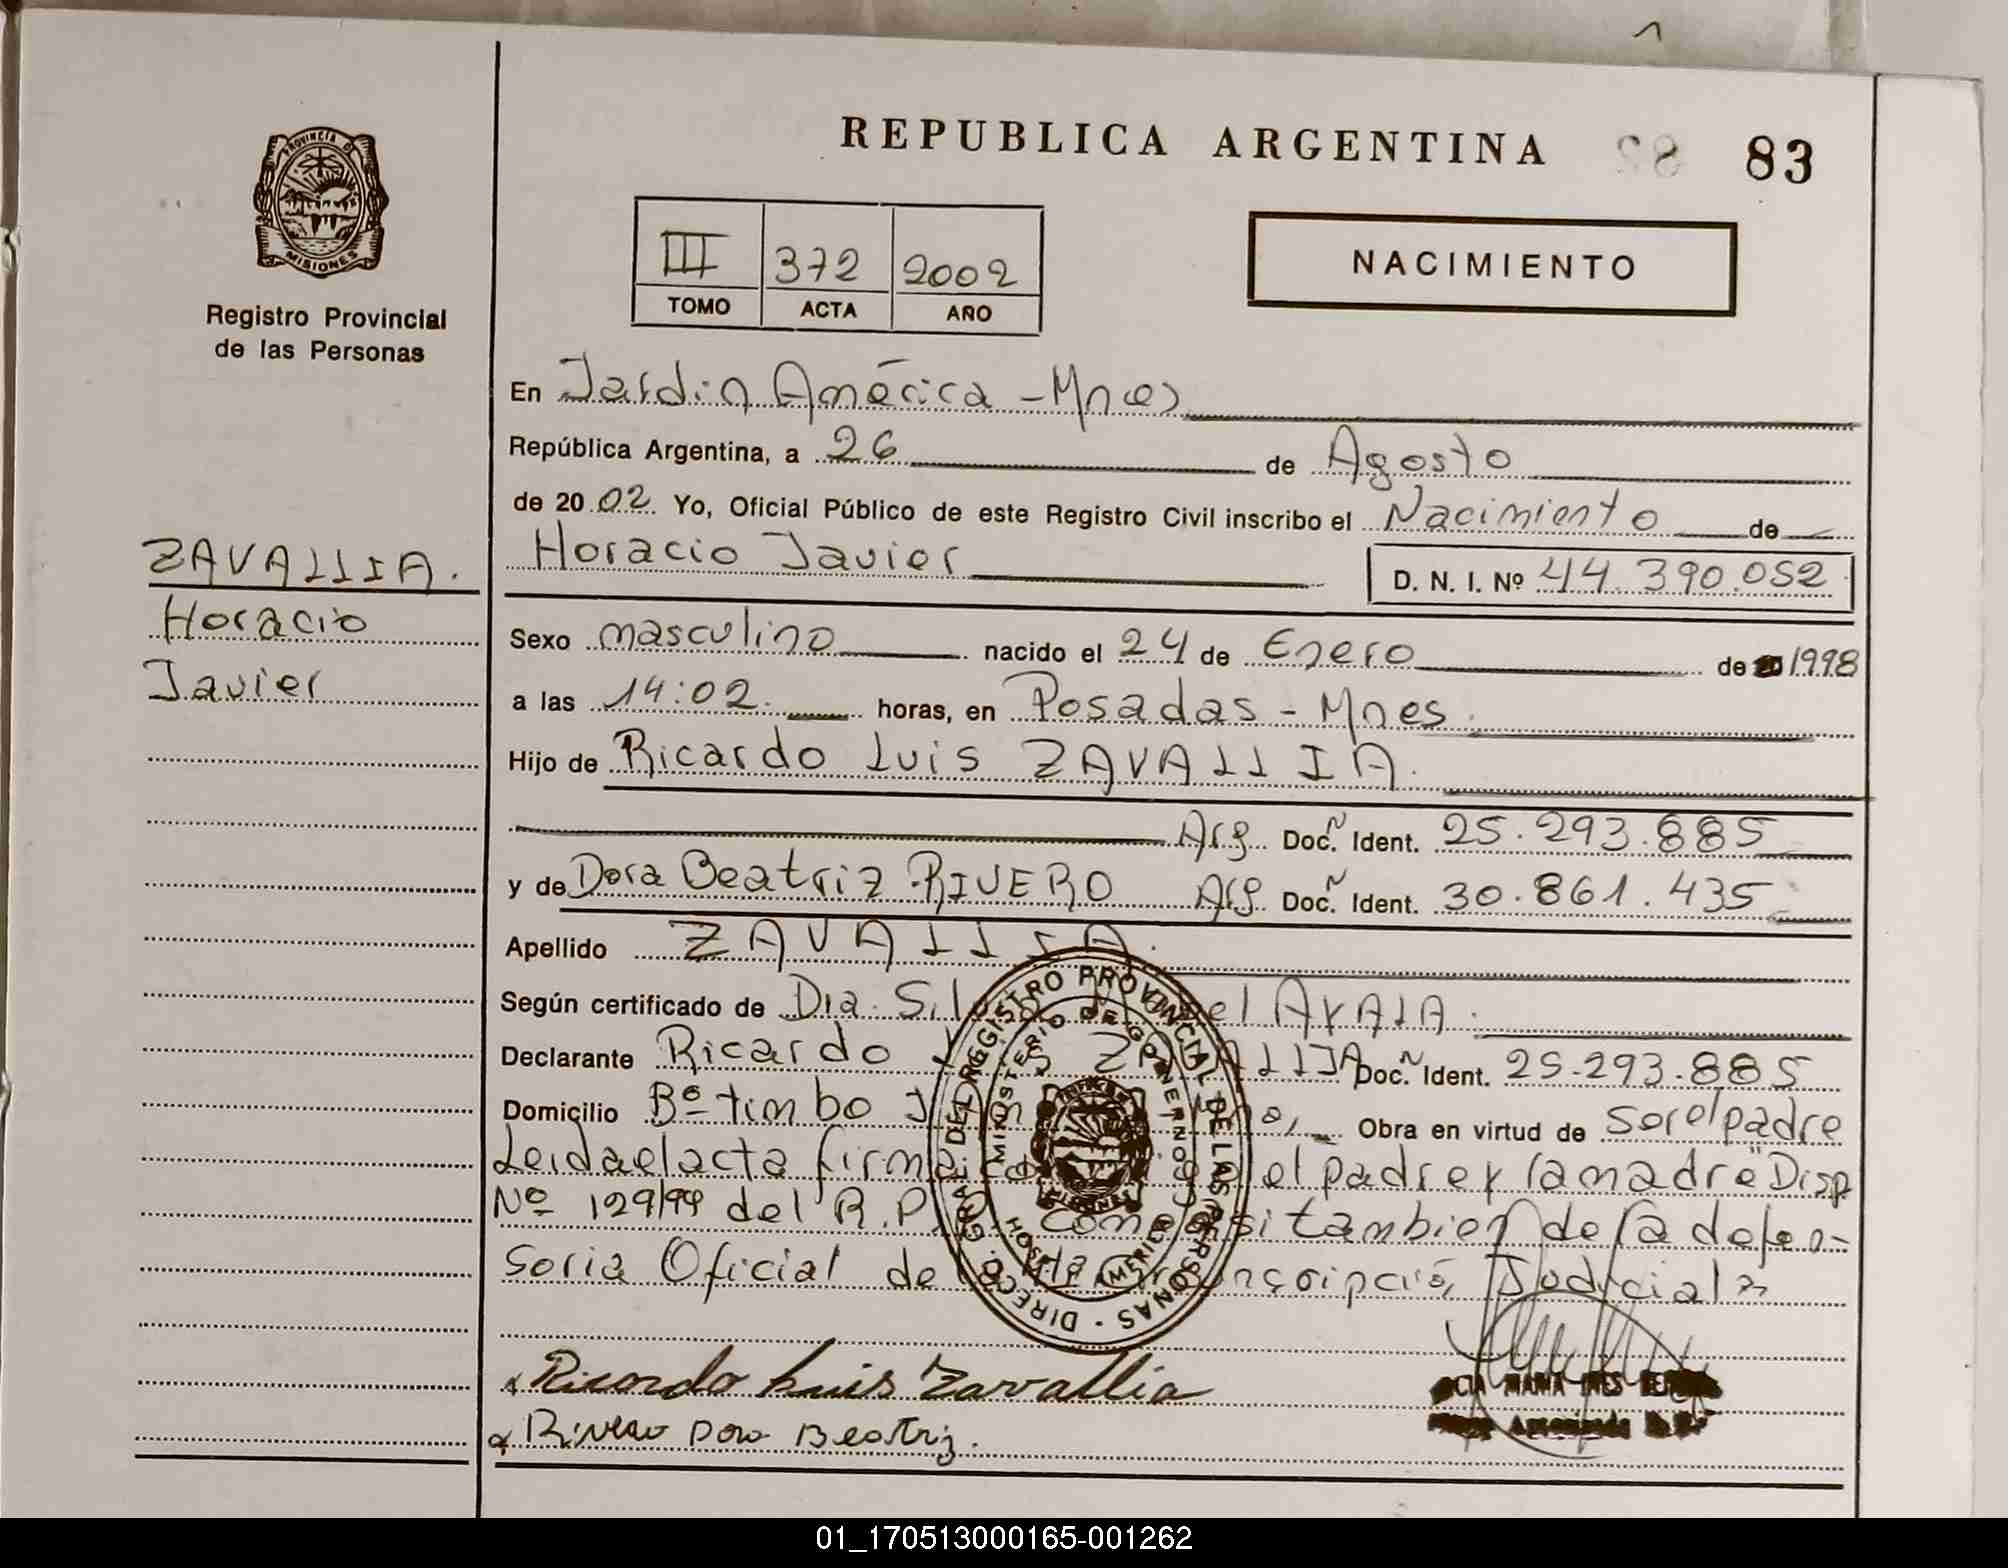 REPUBLICA ARGENTINA 83
PROVINCIA DE
MISIONES
Registro Provincial
de las Personas
III 372 2002
TOMO ACTA AÑO
NACIMIENTO
En Jardin América - Mnes
República Argentina, a 26 de Agosto
de 2002 Yo, Oficial Público de este Registro Civil inscribo el Nacimiento de
Horacio Javier D. N. I. Nº 44.390.052
ZAVALLIA.
Horacio
Javier
Sexo masculino nacido el 24 de Enero de 1998
a las 14:02 horas, en Posadas - Mnes.
Hijo de Ricardo Luis ZAVALLIA.
Arg. Doc. Ident. 25.293.885
y de Dora Beatriz RIVERO Arg. Doc. Ident. 30.861.435
Apellido ZAVALLIA.
Según certificado de Dra. AYALA.
Declarante Ricardo ZAVALLIA Doc. Ident. 25.293.885
Domicilio Bº timbo Obra en virtud de ser el padre
Leida el acta el padre y la madre "Disp
Nº 129/99 del R.P. como asi tambien de la defen-
soria Oficial de Circunscripció Judicial"
DIRECC. GRAL. DEL REGISTRO PROVINCIAL DE LAS PERSONAS
MINISTERIO DE GOBIERNO
MISIONES
Ricardo Luis Zavallia
Rivero Dora Beatriz.
MARIA INES
01_170513000165-001262